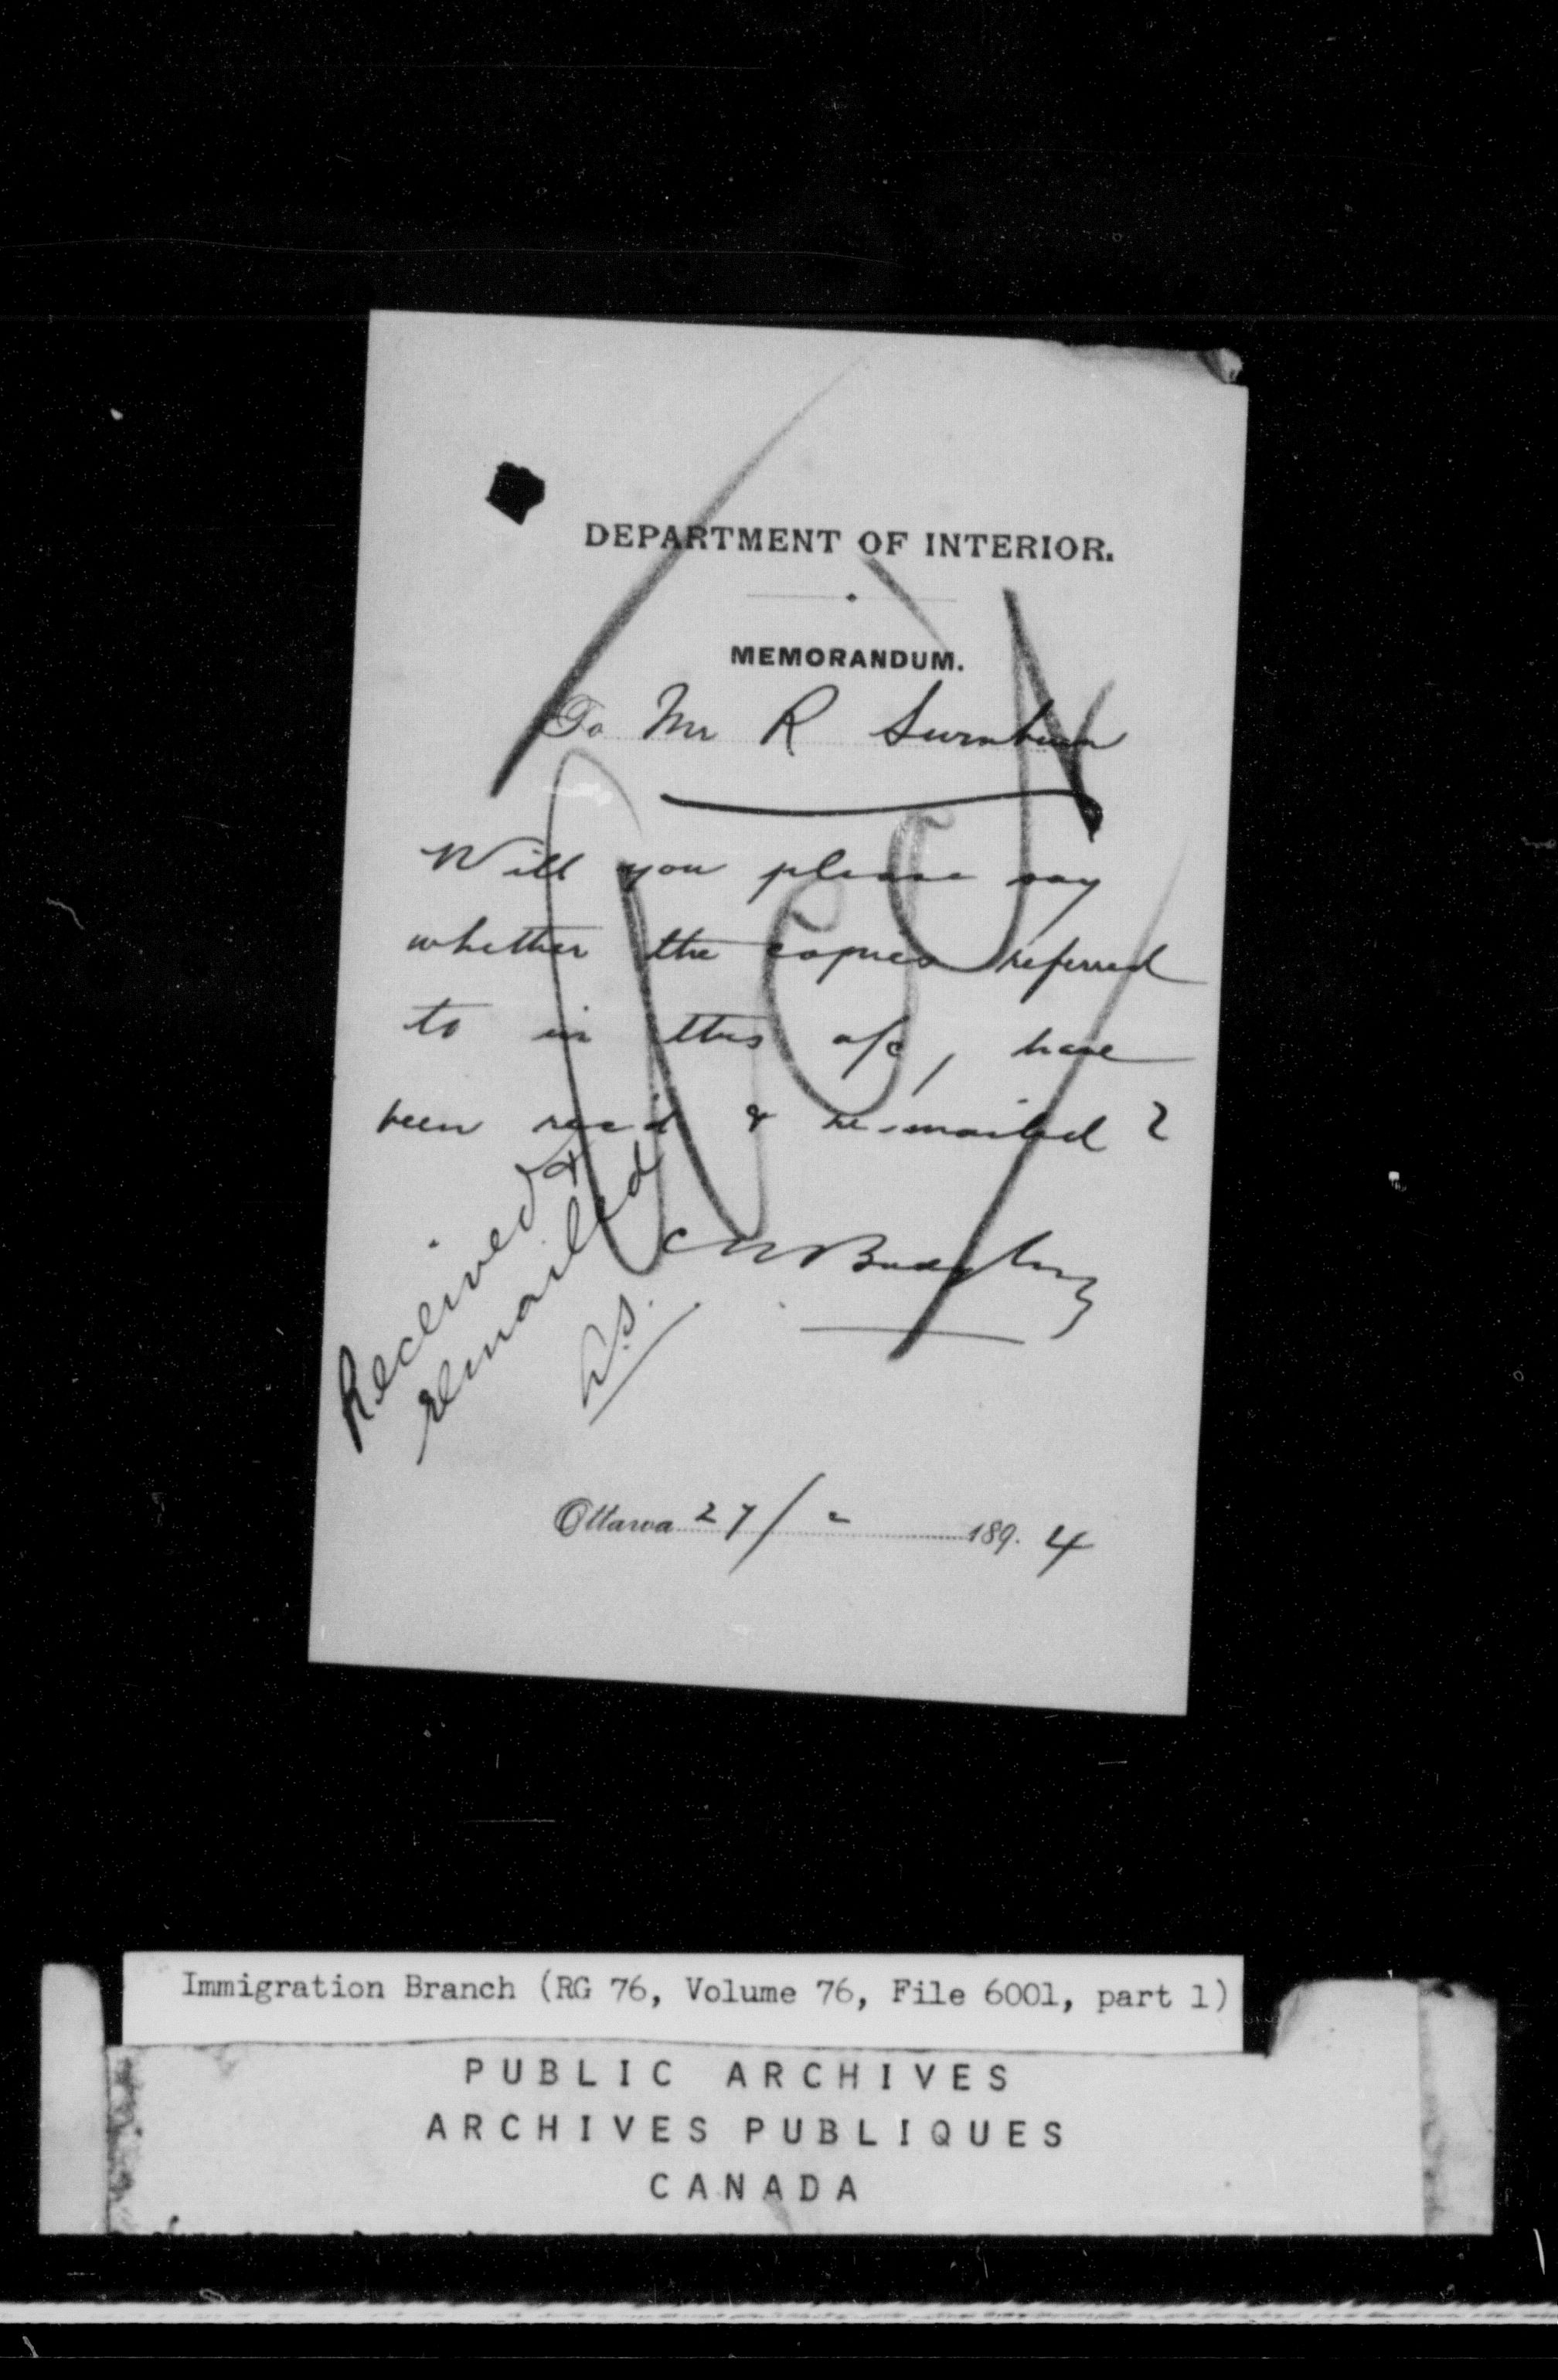 DEPARTMENT OF INTERIOR.
MEMORANDUM.
To Mr R
Will you please say
whether the copies referred
to in this a/c, have
been rec'd & re-mailed?
Received &
remailed
Ottawa 27/2 189. 4
Immigration Branch (RG 76, Volume 76, File 6001, part 1)
PUBLIC ARCHIVES
ARCHIVES PUBLIQUES
CANADA